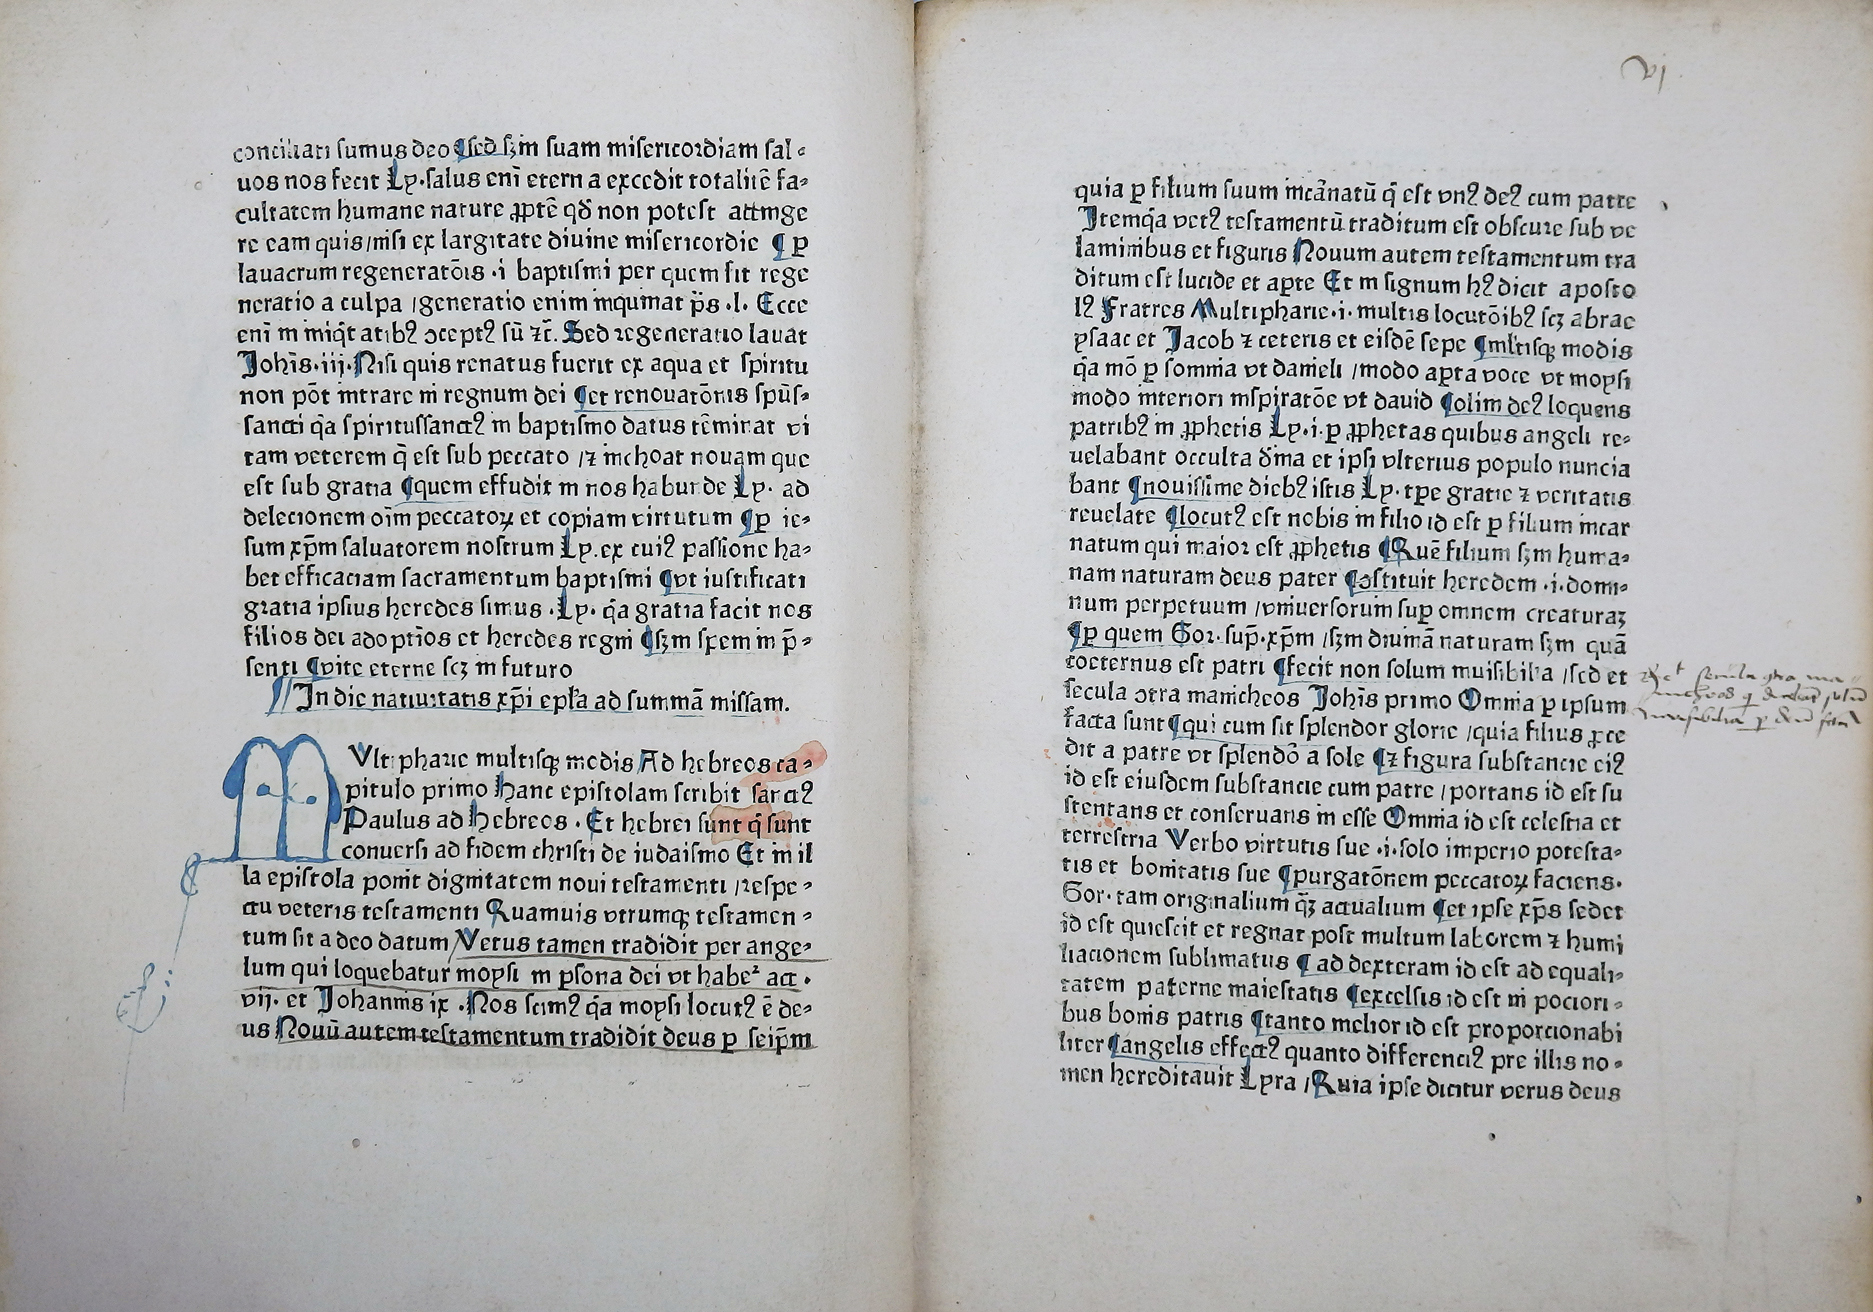 conciliati sumus deo ¶sed sꝫm suam misericordiam sal⸗
uos nos fecit Ly·salus eni̅ etern a excedit totalite̅ fa⸗
cultatem humane nature ꝓpte̅ qd̅ non potest attinge
re eam quis/nisi ex largitate diuine misericordie ¶ p̲
lauacrum regenerato̅is ·i baptismi per quem fit rege
neratio a culpa /generatio enim inquinat p̅s ·l· Ecce
eni̅ in iniq̅t atibꝰ ↄceptꝰ su̅ ⁊c̅. Sed regeneratio lauat
Joh̅is·iij·Nisi quis renatus fuerit ex aqua et spiritu
non po̅t intrare in regnum dei ¶et renouato̅nis spu̅s⸗
sancti q̅a spiritussanctꝰ in baptismo datus te̅minat vi
tam veterem q̅ est sub peccato /⁊ inchoat nouam que
est sub gratia ¶quem effudit in nos habunde Ly· ad
delecionem oi̅m peccatoꝝ et copiam virtutum ¶p̲ ie⸗
sum xp̅m saluatorem nostrum Ly.ex cuiꝰ passione ha⸗
bet efficaciam sacramentum baptismi ¶vt iustificati
gratia ipsius heredes simus ·Ly· q̅a gratia facit nos
filios dei adoptio̅s et heredes regni ¶sꝫm spem in p̅⸗
senti ¶vite eterne scꝫ in futuro
In die natiuitatis xp̅i epl̅a ad summa̅ missam.
MVltipharie multisqꝫ modis Ad hebreos ca⸗
pitulo primo Hanc epistolam scribit sanctꝰ
Paulus ad Hebreos · Et hebrei sunt q̅ sunt
conuersi ad fidem christi de iudaismo Et in il
la epistola ponit dignitatem noui testamenti /respe⸗
ctu veteris testamenti Quamuis vtrumqꝫ testamen⸗
tum sit a deo datum /Vetus tamen tradidit per ange⸗
lum qui loquebatur moysi in p̲sona dei vt habeᷣ act ·
vij· et Johannis ix ·Nos scimꝰ q̅a moysi locutꝰ e̅ de⸗
us Nouu̅ autem testamentum tradidit deus p̲ seip̅m
vj
quia p̲ filium suum inca̅natu̅ q̅ est vnꝰ deꝰ cum patre
Itemq̅a vetꝰ testamentu̅ traditum est obscure sub ve
laminibus et figuris Nouum autem testamentum tra
ditum est lucide et ap̲te Et in signum hꝰ dicit aposto
lꝰ Fratres Multipharie·i· multis locuto̅ibꝰ scꝫ abrae
ysaac et Jacob ⁊ ceteris et eisde̅ sepe ¶ml̅tisqꝫ modis
q̅a mo̅ p̲ somnia vt danieli /modo ap̲ta voce vt moysi
modo interiori inspirato̅e vt dauid ¶olim deꝰ loquens
patribꝰ in ꝓphetis Ly·i·p̲ ꝓphetas quibus angeli re⸗
uelabant occulta d̅ina et ipsi vlterius populo nuncia
bant ¶nouissime diebꝰ istis Ly· tp̅e gratie ⁊ veritatis
reuelate ¶locutꝰ est nobis in filio id est p̲ filium incar
natum qui maior est ꝓphetis ¶Que̅ filium sꝫm huma⸗
nam naturam deus pater ¶ↄstituit heredem ·i·domi⸗
num perpetuum /vniuersorum sup̲ omnem creaturaꝫ
¶p̲ quem Gor· sup̅·xp̅m /sꝫm diuina̅ naturam sꝫm qua̅
coeternus est patri ¶fecit non solum inuisibilia /sed et
secula ↄtra manicheos Joh̅is primo Omnia p̲ ipsum
facta sunt ¶qui cum sit splendor glorie /quia filius ꝓce
dit a patre vt splendo̅ a sole ¶⁊ figura substancie eiꝰ
id est eiusdem substancie cum patre /portans id est su
stentans et conseruans in esse Omnia id est celestia et
terrestria Verbo virtutis sue ·i·solo imperio potesta⸗
tis et bonitatis sue ¶purgato̅nem peccatoꝝ faciens·
Gor· tam originalium q̅ꝫ actualium ¶et ipse xp̅s sedet
id est quiescit et regnat post multum laborem ⁊ humi
liacionem sublimatus ¶ad dexteram id est ad equali⸗
tatem paterne maiestatis ¶excelsis id est in pociori⸗
bus bonis patris ¶tanto melior id est proporcionabi
liter ¶angelis effectꝰ quanto differenciꝰ pre illis no⸗
men hereditauit Lyra /Quia ipse dicitur verus deus